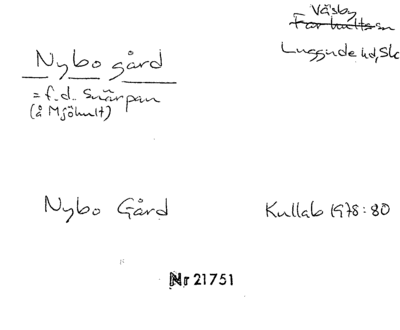 Väsby
Farhultssn
Luggude hd, Sk
Nybo gård
= f.d. Snärpan
(å Mjöhult)
Nybo Gård
Kullab 1978:80
Nr 21751